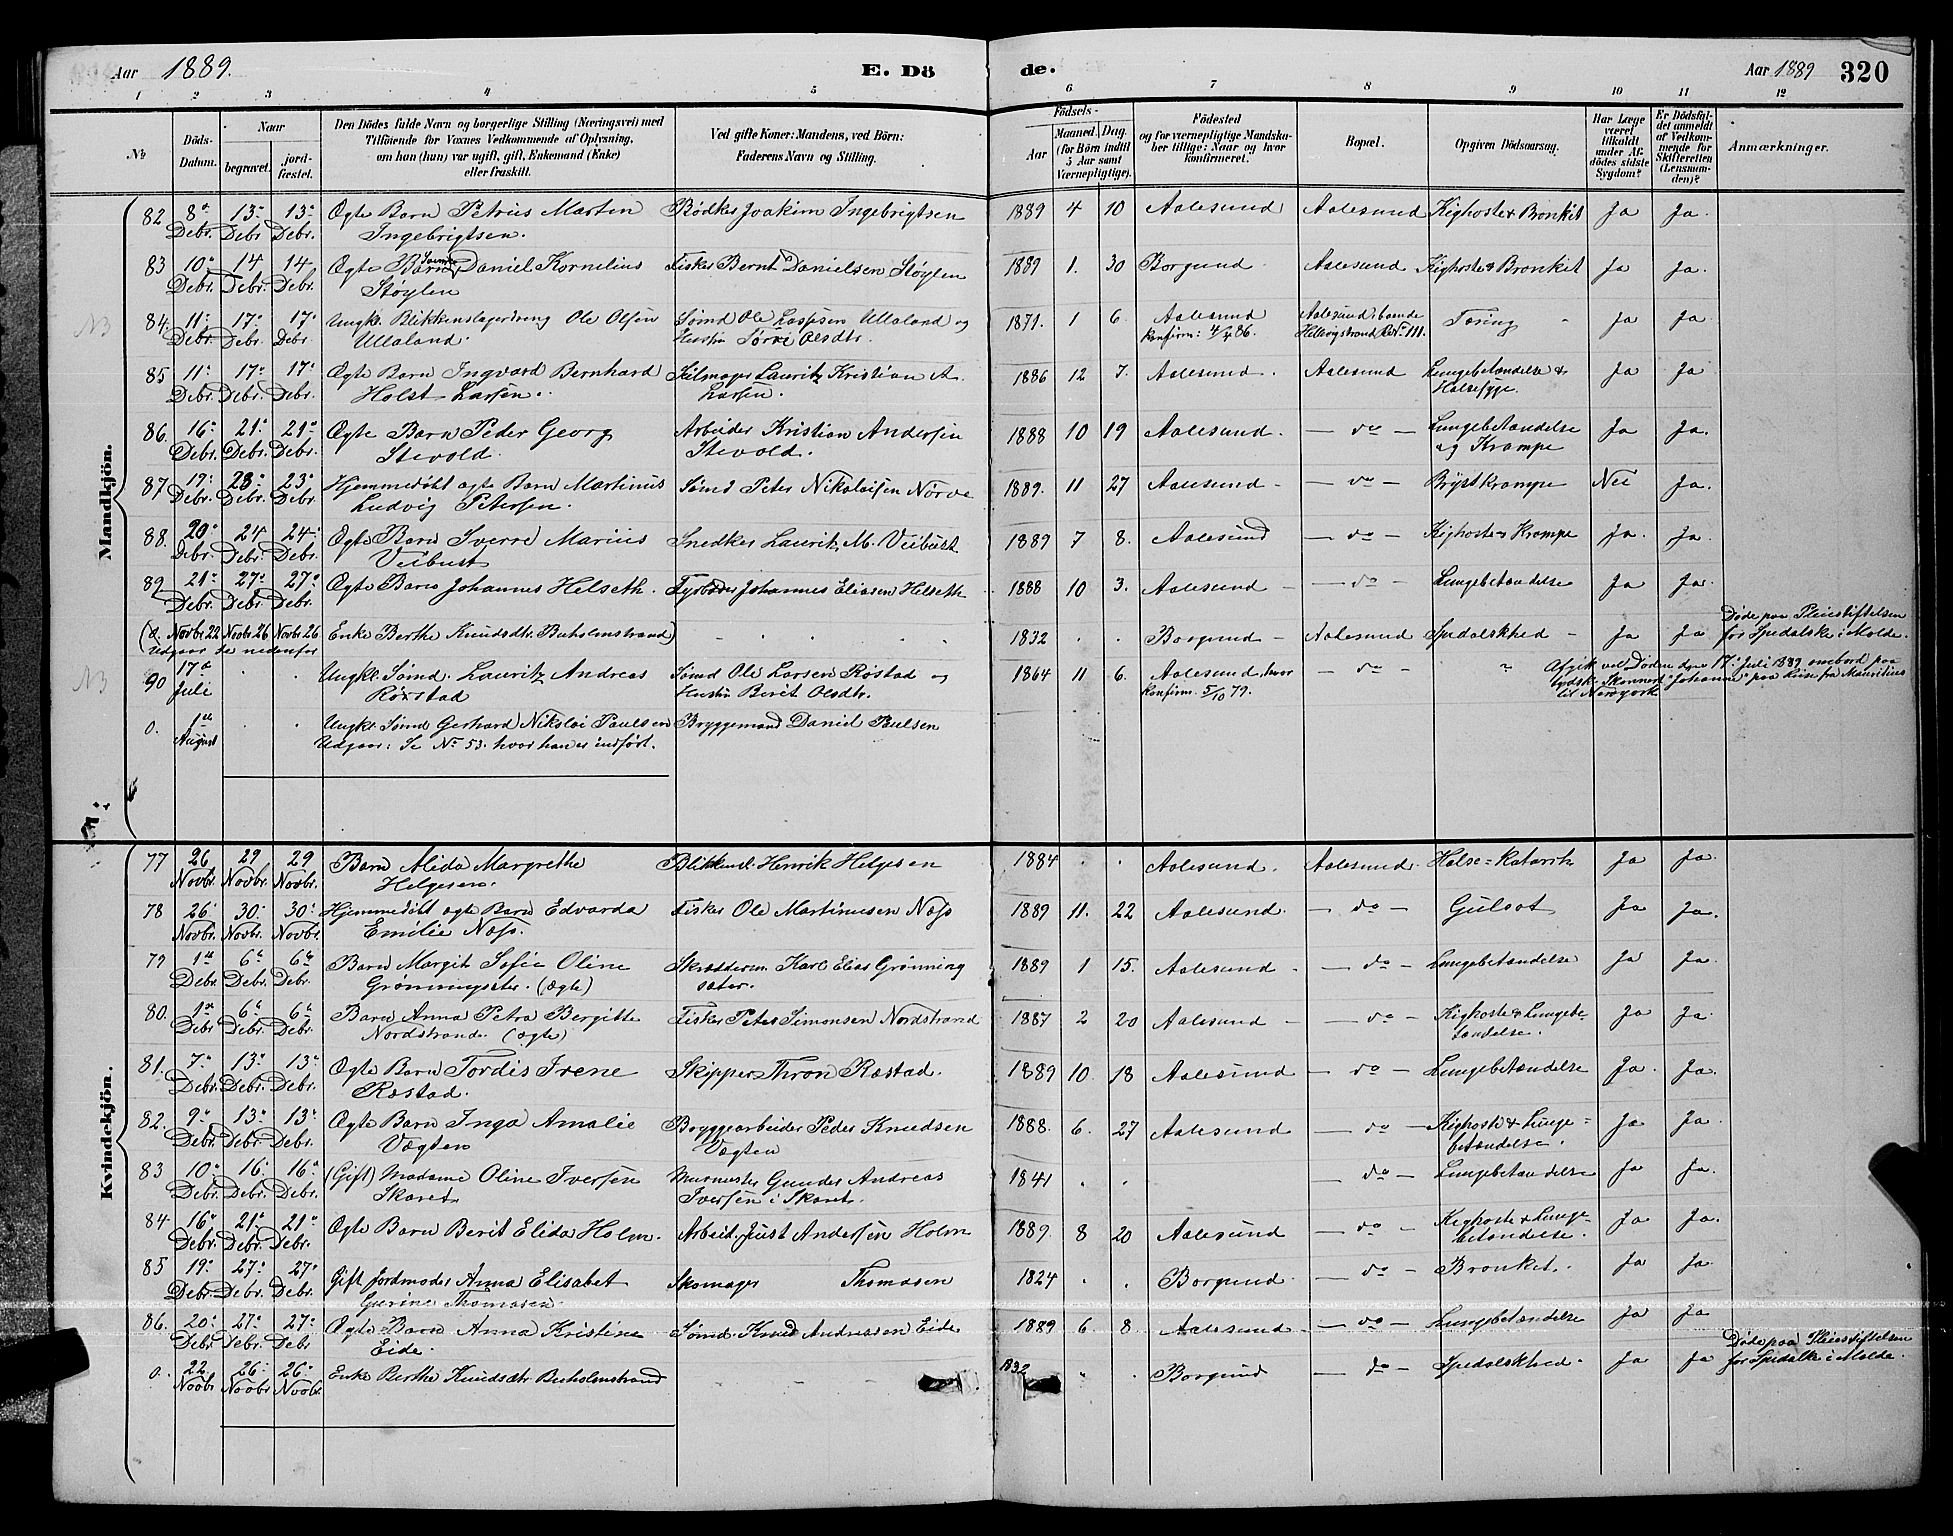 Aar 1889. E. Dö de. Aar 1889 320
1 2 3 4 5 6 7 8 9 10 11 12
No Döds-Datum. Naar begravet. jord-fæstet. Den Dödes fulde Navn og borgerlige Stilling (Næringsvei) med Tilföiende for Voxnes Vedkommende af Oplysning, om han (hun) var ugift, gift, Enkemand (Enke) eller fraskilt. Ved gifte Koner: Mandens, ved Börn: Faderens Navn og Stilling. Födsels- Aar Maaned. Dag. (for Börn indtil 5 Aar samt Værnepligtige). Födested og for værnepligtige Mandskaber tillige: Naar og hvor konfirmeret. Bopæl. Opgiven Dödsaarsag. Har Læge været tilkaldt under Afdödes sidste Sygdom? Er Dödsfaldet anmeldt af Vedkommende for Skifteretten (Lensmanden)? Anmærkninger.
Mandkjön.
82 8de Debr. 13de Debr. 13de Debr. Ægte Barn Petrus Martin Ingebrigtsen. Bødker Joakim Ingebrigtsen 1889 4 10 Aalesund Aalesund Kighoste & Bronkit Ja Ja.
83 10de Debr. 14 Debr. 14 Debr. Ægte Barn Daniel Kornelius Støylen Fisker Bernt Danielsen Støylen 1889 1. 30 Borgund Aalesund Kighoste & Bronkit Ja Ja.
NB 84. 11te Debr. 17de Debr. 17de Debr. Ungk. Blikkenslagerdreng Ole Olsen Ullaland. Sømd Ole Larsen Ullaland og Hustru Olsdtr. 1871. 1 6. Aalesund konfirm: 4/4 86. Aalesund, boende No 111. Tæring Ja Ja.
85 11te Debr. 17de Debr. 17de Debr. Ægte Barn Ingvard Bernhard Holst Larsen. Seilmager Lauritz Kristian A. Larsen. 1886 12 7. Aalesund. Aalesund Lungebetændelse & Halsesyge. Ja Ja
86. 16de Debr. 21de Debr. 21de Debr. Ægte Barn Peder Georg Stevold. Arbeider Kristian Andersen Stevold. 1888 10 19 Aalesund. — do — Lungebetændelse og Krampe Ja Ja.
87 19de Debr. 23de Debr. 23de Debr. Hjemmedøbt ægte Barn Martinus Ludvig Petersen. Sømd Peter Nikolaisen Nørve 1889. 11 27 Aalesund — do — Brystkrampe Nei Ja.
88. 20de Debr. 24 Debr. 24de Debr. Ægte Barn Sverre Marius Veibust Snedker Laurits M. Veibust 1889 7 8. Aalesund — do — Kighoste & Krampe Ja. Ja.
89 21de Debr. 27de Debr. 27de Debr. Ægte Barn Johannes Helseth. Fyrbøder Johannes Eliasen Helseth 1888 10 3. Aalesund — do — Lungebetændelse Ja Ja.
(0. Novbr. 22 Novbr 26 Novbr 26 Enke Berthe Knudsdtr. Buholmstrand) Udgaar se nedenfor 1832 Borgund — Aalesund Spedalskhed Ja Ja Døde paa Pleiestiftelsen for Spedalske i Molde.
NB 90 17de Juli Ungk. Sømd. Lauritz Andreas Rørstad Sømd Ole Larsen Røstad og Hustru Berit Olsdtr. 1864 11 6. Aalesund, hvor konfirm. 5/10 79. — do — Afgik ved Døden den 17de Juli 1889 ombord paa tydsk Skonnert "Johanna" paa Reise fra Mauritius til Newyork
0. 1ste August Ungk. Sømd Gerhard Nikolai Paulsen Udgaar: Se No 53. hvor han er indført. Bryggemand Daniel Paulsen
Kvindekjön.
77 26 Novbr. 29 Novbr. 29 Novbr. Barn Alida Margrethe Helgesen. Blikkensl. Henrik Helgesen 1884 Aalesund. Aalesund. Halse-Katarrh Ja Ja.
78 26 Novbr. 30 Novbr. 30 Novbr. Hjemmedøbt ægte Barn Edvarda Emilie Næss. Fisker Ole Martinusen Næss 1889 11. 22 Aalesund. — do — Gulsot Ja Ja.
79 1ste Debr. 6te Debr. 6te Debr. Barn Margit Sofie Oline Grønningsæter. (ægte) Skræddern. Karl Elias Grønningsæter. 1889 1 15. Aalesund — do — Lungebetændelse Ja Ja.
80. 1ste Debr 6te Debr. 6te Debr. Barn Anna Petra Bergitte Nordstrand. (ægte) Fisker Peter Simonsen Nordstrand 1887 2 20 Aalesund — do — Kighoste & Lungebetændelse. Ja Ja.
81. 7de Debr. 13de Debr. 13de Debr. Ægte Barn Tordis Irene Røstad. Skipper Thron Røstad. 1889 10. 18 Aalesund — do — Lungebetændelse Ja. Ja.
82. 9de Debr. 13de Debr. 13de Debr. Ægte Barn Inga Amalie Vegten Bryggearbeider Peder Knudsen Vegten 1888. 6. 27 Aalesund — do — Kighoste & Lungebetændelse. Ja Ja.
83 10de Debr. 16de Debr. 16de Debr. (Gift) Madame Oline Iversen Skaret Murmester Gunder Andreas Iversen i Skaret. 1841 do — Lungebetændelse Ja Ja.
84 16de Debr. 21de Debr. 21de Debr. Ægte Barn Berit Elida Holm. Arbeid. Just Andersen Holm 1889. 8 20 Aalesund — do — Kighoste & Lungebetændelse. Ja Ja.
85 19de Debr. 27de Debr. 27de Debr. Gift Jordmoder Anna Elisabet Gurine Thomasen. Skomager Thomasen 1824 Borgund. — do — Bronkit. Ja Ja.
86. 20de Debr. 27de Debr. 27de Debr Ægte Barn Anna Kristine Eide. Sømd. Knud Andreasen Eide 1889 6 8. Aalesund — do — Lungebetændelse Ja Ja
0. 22 Novbr. 26 Novbr. 26 Novbr. Enke Berthe Knudsdtr Buholmstrand 1832 Borgund — do — Spedalskhed. Ja Ja Døde paa Pleiestiftelsen for Spedalske i Molde.